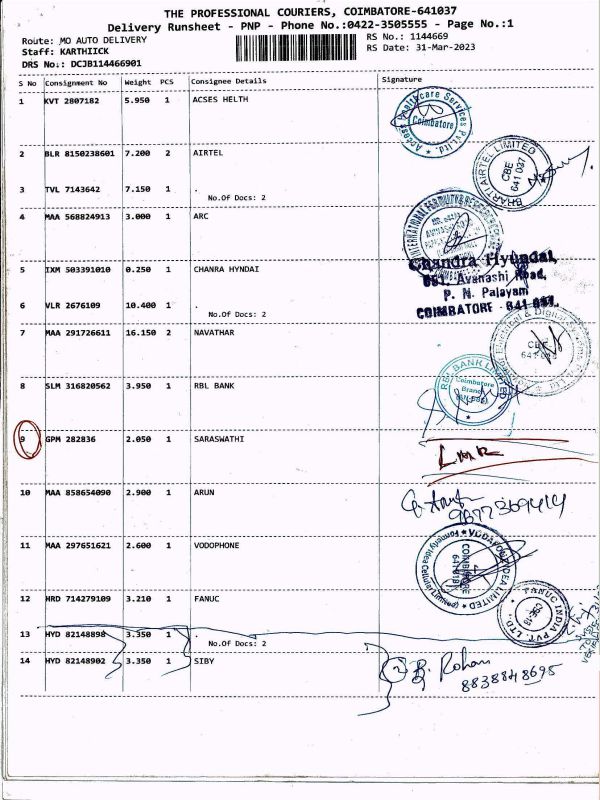 THE PROFESSIONAL COURIERS, COIMBATORE-641037
Delivery Runsheet - PNP - Phone No.:0422-3505555 - Page No.:1
Route: MO AUTO DELIVERY
RS No.: 1144669
Staff: KARTHIICK
RS Date: 31-Mar-2023
DRS No.: DCJB114466901
S No Consignment No Weight PCS Consignee Details Signature
1 KVT 2807182 5.950 1 ACSES HELTH
Access Healthcare Services Pvt.Ltd.
Coimbatore
2 BLR 8150238601 7.200 2 AIRTEL
BHARTI AIRTEL LIMITED
CBE
641 037
3 TVL 7143642 7.150 1 .
No.Of Docs: 2
4 MAA 568824913 3.000 1 ARC
5 IXM 503391010 0.250 1 CHANRA HYNDAI
Chandra Hyundai,
Avanashi Road,
P. N. Palayam
COIMBATORE - 641 037.
6 VLR 2676109 10.400 1 .
No.Of Docs: 2
7 MAA 291726611 16.150 2 NAVATHAR
CBE
8 SLM 316820562 3.950 1 RBL BANK
RBL BANK LIMITED
Coimbatore
Branch
9 GPM 282836 2.050 1 SARASWATHI
10 MAA 858654090 2.900 1 ARUN
11 MAA 297651621 2.600 1 VODOPHONE
VODAFONE IDEA LIMITED
(Formerly Idea Cellular Limited)
COIMBATORE
12 HRD 714279109 3.210 1 FANUC
FANUC INDIA PVT. LTD.
13 HYD 82148898 3.350 1 .
No.Of Docs: 2
14 HYD 82148902 3.350 1 SIBY
2 B. Rohan
8838848695